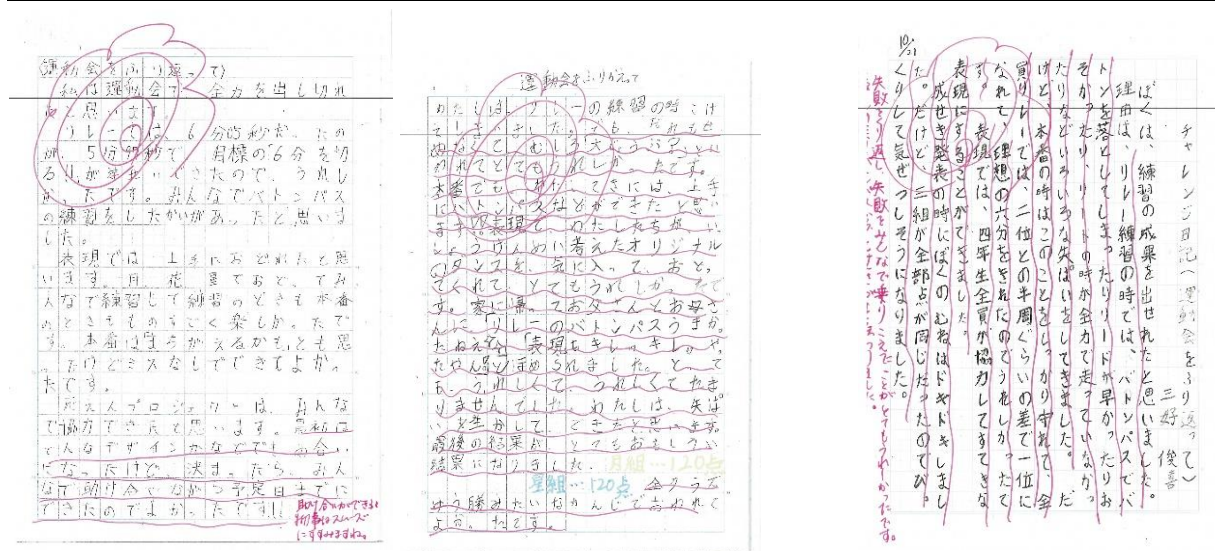 (運動会をふり返って)
私は運動会で、全力を出し切れ
たと思います。
リレーでは、6分05秒だったの
が、5分 秒で、目標の6分を切
る
の練習をしたかいがあったと思いま
した。
表現では、上手におどれたと思
います。月、花、星でおどって、み
んなで練習して練習のときも本番
のときもものすごく楽しかったで
す。本番はまちがえるかもとも思
ったけどミスなしでできてよかっ
たです。
プロジェクトは、みんな
で協力できたと思います。最初は
どんなデザインかなどで
になったけど、決まったら、みん
なで助け合いながら予定日までに
できたのでよかったです!!
助け合いができると
物事はスムーズ
にすすみますね。
運動会をふりかえって
わたしは、リレーの練習の時こけ
てしまいました。でも、だれもせ
めなくて、むしろ大じょうぶ?とい
われてとてもうれしかったです。
本番でも
にバトンパスなどができたと思い
ます。表現で、わたしたちがいっ
しょうけんめい考えたオリジナル
のダンスを、気に入って、おどっ
てくれて、とてもうれしかったで
す。家に帰ってお父さんとお母さ
んに「リレーのバトンパスうまかっ
たねえ」と「表現 キレッキレ
たやん」とほめられました。とって
も、うれしくて、うれしくてたま
りませんでした。わたしは、失ぱ
いを生かして、できたと思います。
最後の結果が、とてもおもしろい
結果になりました。月組…120点
星組…120点 全クラスで
ゆう勝みたいなかんじで
よかったです。
チャレンジ日記(運動会をふり返って)
三好 俊喜
10/21
ぼくは、練習の成果を出せれたと思いました。
理由は、リレー練習の時では、バトンパスでバ
トンを落としてしまったりリードが早かったりお
そかったり、リードの時が全力で走っていなかっ
たりなどいろいろな失ぱいをしてきました。だ
けど、本番の時はこのことをしっかり守れて、全
員リレーでは、二位との半周ぐらいの差で一位に
なれて、理想の六分をきれたのでうれしかったで
す。表現では、四年生全員が協力してすてきな
表現にすることができました。
成せき発表の時にぼくのむねはドキドキしまし
た。だけど、三組が全部点が同じだったのでび
くりして気ぜつしそうになりました。
失敗をくり返し、失敗をみんなで乗りこえたことがとてもうれしかったです。